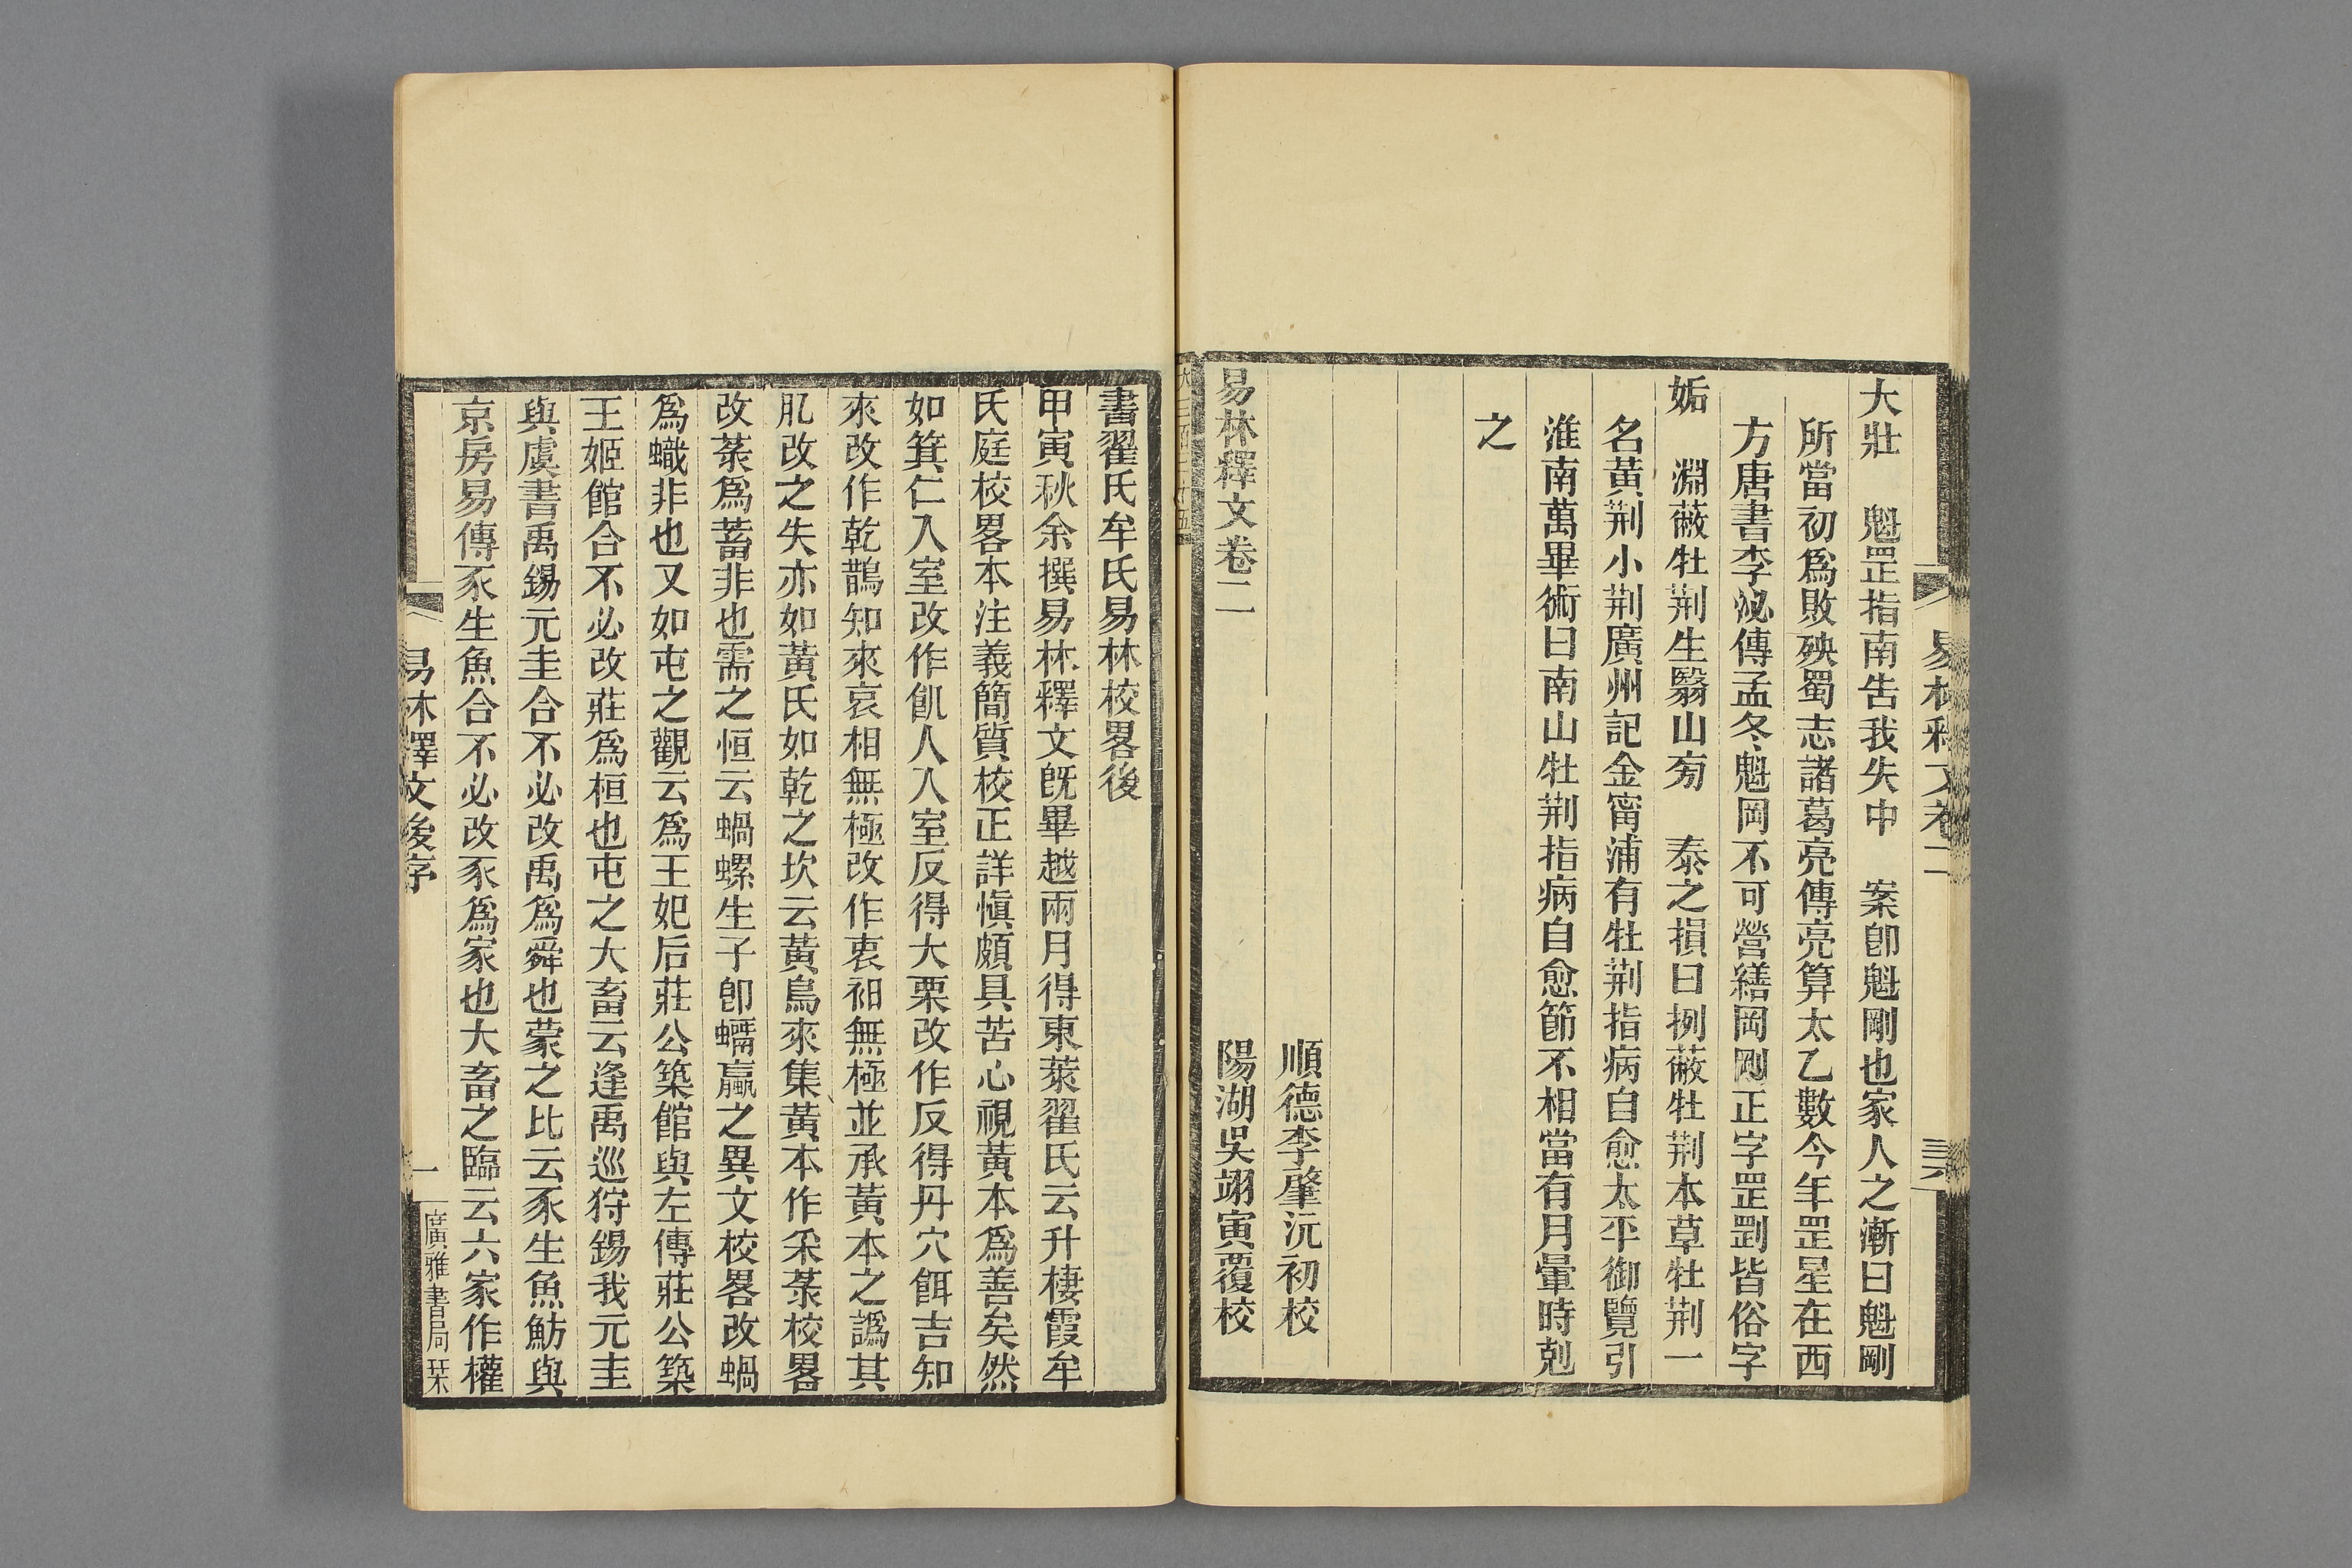 易林釋文卷二
大壯　魁罡指南告我失中　案卽魁剛也家人之漸曰魁剛
所當初爲敗殃蜀志諸葛亮傳亮算太乙數今年罡星在西
方唐書李泌傳孟冬魁岡不可營繕岡剛正字罡㓻皆俗字
姤　淵蔽牡荆生賢山旁　泰之損曰捌蔽牡荆本草牡荆一
名黃荆小荆廣州記金甯浦有牡荆指病自愈太平御覽引
淮南萬畢術曰南山牡荆指病自愈節不相當有月暈時剋
之
順德李肇沅初校
易林釋文卷二　陽湖吳翊寅覆校
書翟氏牟氏易林校畧後
甲寅秋余撰易林釋文旣畢越兩月得東萊翟氏云升棲霞牟
氏庭校畧本注義簡質校正詳愼頗具苦心視黃本爲善矣然
如箕仁入室改作飢人入室反得大栗改作反得丹穴餌吉知
來改作乾鵲知來哀相無極改作衷袒無極並承黃本之譌其
肊改之失亦如黃氏如乾之坎云黃鳥來集黃本作采蓫校畧
改蓫爲蓄非也需之恒云蝸螺生子卽蠣蠃之異文校畧改蝸
爲蟙非也又如屯之觀云爲王妃后莊公築館與左傳莊公築
王姬館合不必改莊爲桓也屯之大畜云逢禹巡狩錫我元圭
與虞書禹錫元圭合不必改禹爲舜也蒙之比云豕生魚魴與
京房易傳豕生魚合不必改豕爲家也大畜之臨云六家作權
易林釋文後序
一
廣雅書局栞